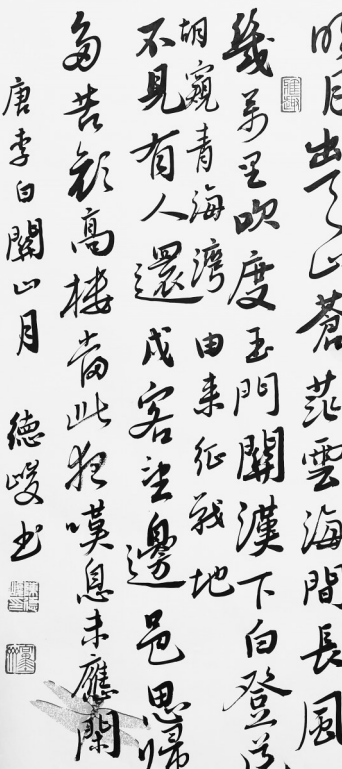 明月出天山蒼茫雲海間長風
幾萬里吹度玉門關漢下白登道
胡窺青海灣由来征戰地
不見有人還戍客望邊邑思歸
多苦顏高樓當此夜嘆息未應閑
唐李白關山月 德峻书